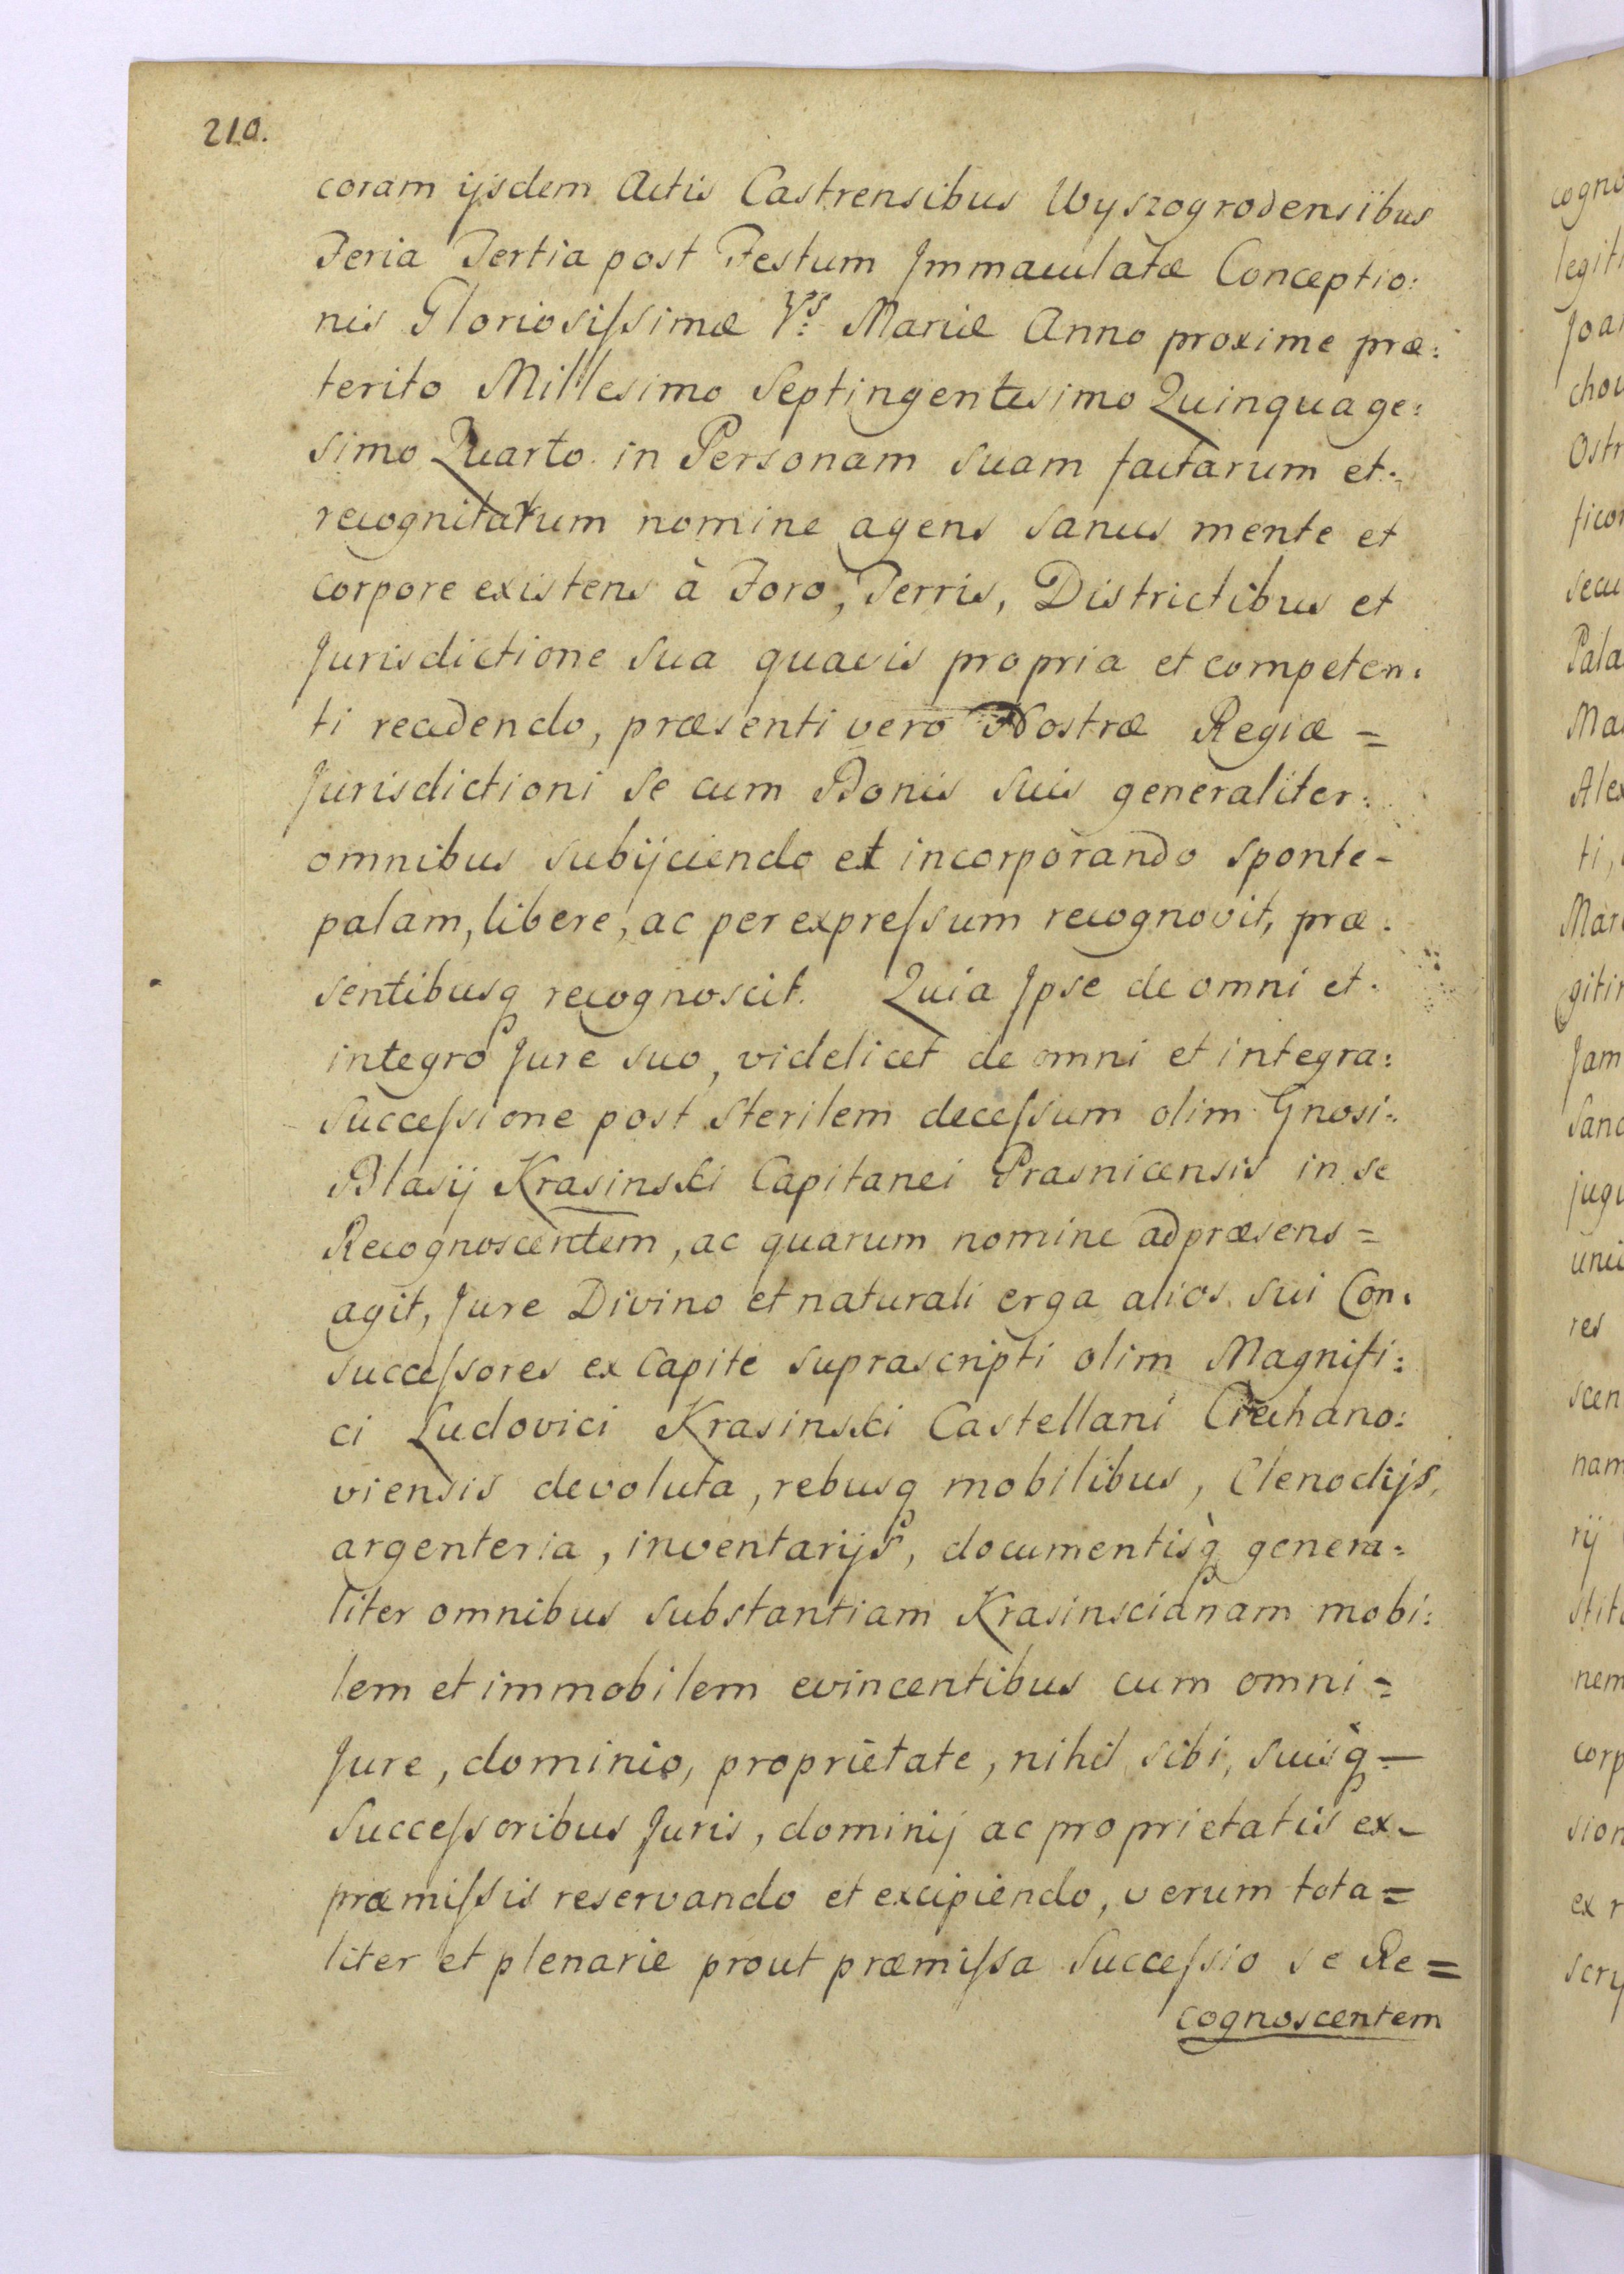 210.
coram ijsdem Actis Castrensibus Wyszogrodensibus
Feria Tertia post Festum Immaculatæ Conceptio:
nis Gloriosissimæ Vs: Mariæ Anno proxime præ:
terito Millesimo Septingentesimo Quinquage:
simo Quarto in Personam suam factarum et
recognitarum nomine agens sanus mente et
corpore existens à Foro, Terris, Districtibus et
Jurisdictione sua quavis propria et competen:
ti recedendo, præsenti vero Nostræ Regiæ =
Jurisdictioni se cum Bonis suis generaliter:
omnibus subijciendo et incorporando sponte-
palam, libere, ac per expressum recognovit, præ:
sentibusq recognoscit. Quia Ipse de omni et
integro Jure suo, videlicet de omni et integra:
successione post sterilem decessum olim Gnosi:
Blasij Krasinski Capitanei Prasnicensis in se
Recognoscentem, ac quarum nomine ad præsens =
agit, Jure Divino et naturali erga alios sui Con:
successores ex Capite suprascripti olim Magnifi:
ci Ludovici Krasinski Castellani Ciechano:
viensis devoluta, rebusq mobilibus, Clenodijs,
argenteria, inventarijs, documentisq genera:
liter omnibus substantiam Krasinscianam mobi:
lem et immobilem evincentibus cum omni =
Jure, dominio, proprietate, nihil sibi, suisq -
Successoribus Juris, dominij ac proprietatis ex-
præmissis reservando et excipiendo, verum tota=
liter et plenarie prout præmissa Successio se Re=
cognoscentem
cogno
legiti
Joa
chov
Ostr
fico
secu
Pala
Ma
Alex
ti,
Mar
gitin
Jam
Sanc
jugu
uni
res
scen
nam
rij
stit
nem
corp
sion
ex r